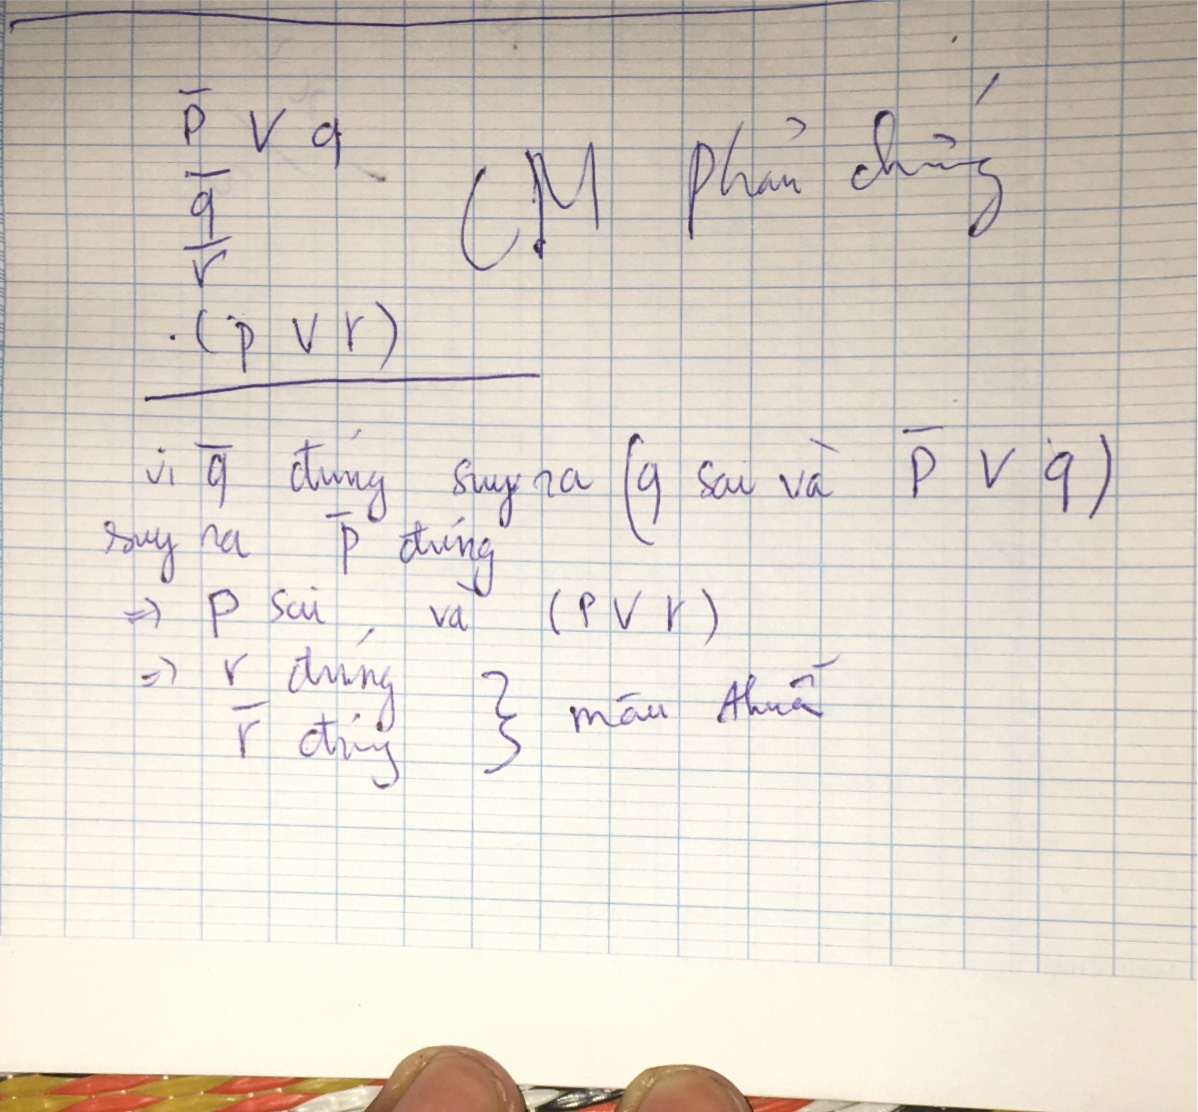 p̅ V q
q̅
r̅
CM phản chứng
. (p V r)
vì q̅ đúng suy ra (q sai và p̅ V q)
suy ra p̅ đúng
=> p sai và (p V r)
=> r đúng
r̅ đúng } mâu thuẫ